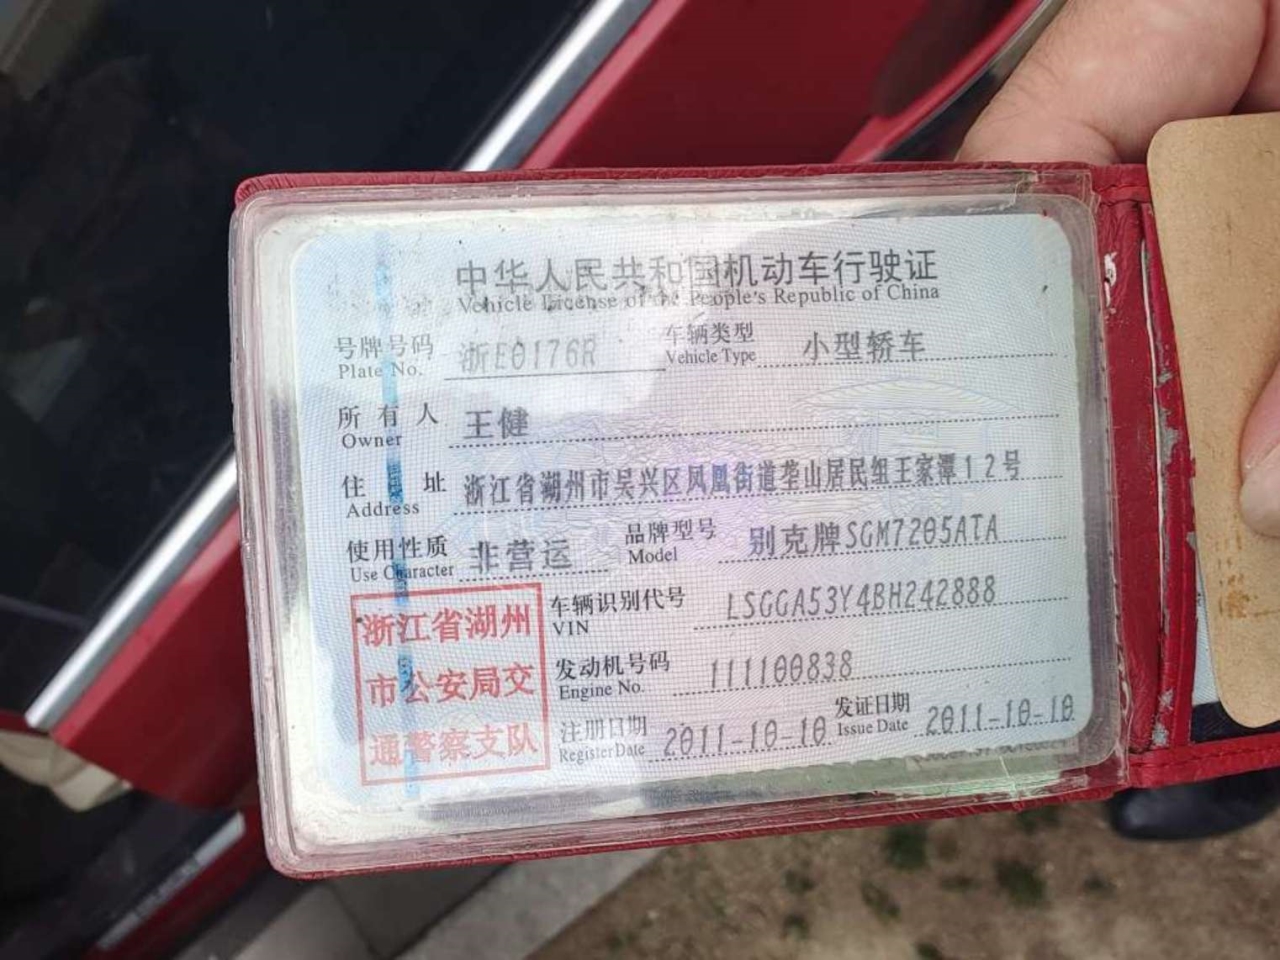 中华人民共和国机动车行驶证
Vehicle License of the People's Republic of China
号牌号码 浙E0176R 车辆类型 小型轿车
Plate No. Vehicle Type
所有人 王健
Owner
住址 浙江省湖州市吴兴区凤凰街道垄山居民组王家潭12号
Address
使用性质 非营运 品牌型号 别克牌SGM7205ATA
Use Character Model
浙江省湖州
市公安局交
通警察支队
车辆识别代号 LSGGA53Y4BH242888
VIN
发动机号码 111100838
Engine No.
注册日期 2011-10-10 发证日期 2011-10-10
Register Date Issue Date